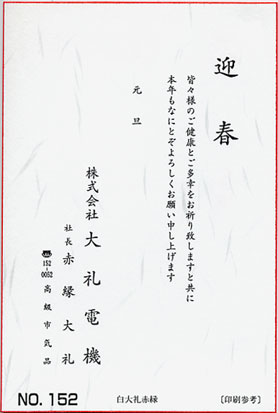 迎春
皆々様のご健康とご多幸をお祈り致しますと共に
本年もなにとぞよろしくお願い申し上げます
元旦
株式会社 大礼電機
社長 赤縁大礼
152-0052 高級市気品
NO. 152
白大礼赤縁
〔印刷参考〕